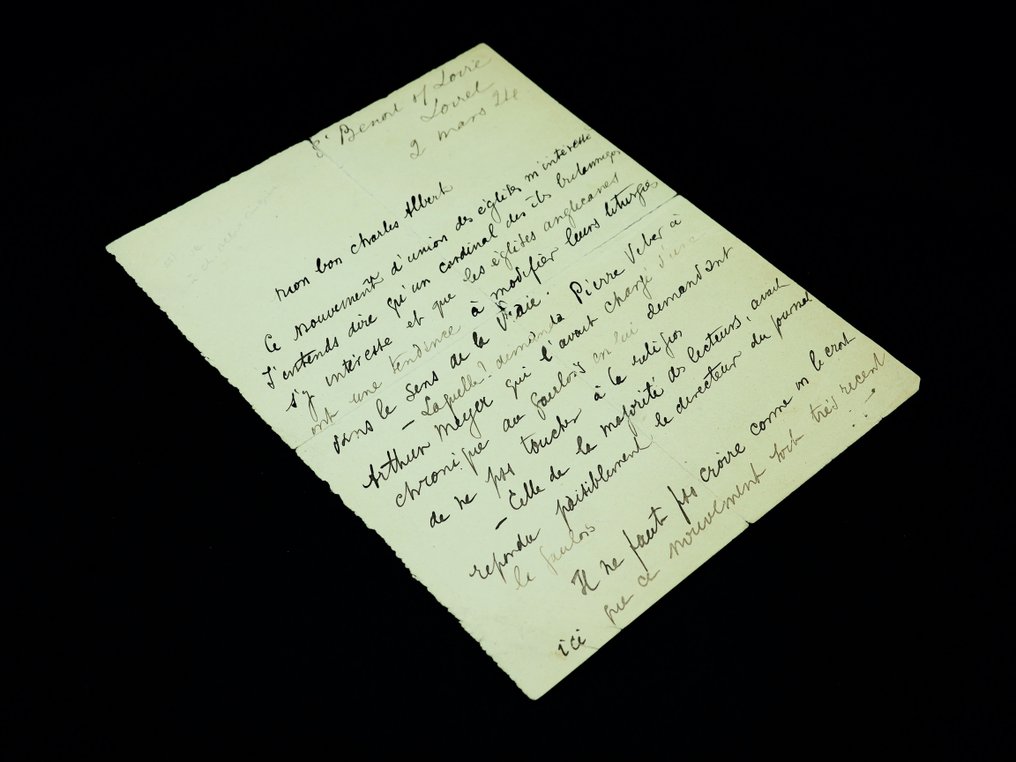 St Benoit s/ Loire
Loiret
2 mars 24
mon bon Charles Albert
Ce mouvement d'union des églises m'intéresse
J'entends dire qu'un cardinal des îls britanniques
s'y intéresse et que les églises anglicanes
ont une tendence à modifier leurs liturgies
dans le sens de la Vraie.
– Laquelle? demanda Pierre Veber à
Arthur Meyer qui l'avait chargé d'une
chronique au Gaulois en lui demandant
de ne pas toucher à la religion
– Celle de la majorité des lecteurs, avait
repondu paisiblement le directeur du journal
le Gaulois
Il ne faut pas croire comme on le croit
ici que ce mouvement soit très recent